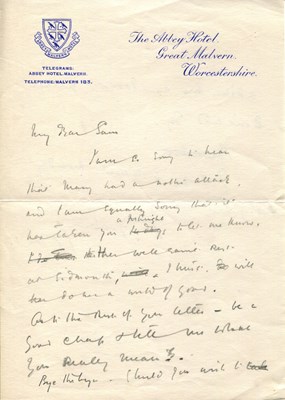 The Abbey Hotel,
Great Malvern,
Worcestershire.
TELEGRAMS:
ABBEY HOTEL, MALVERN.
TELEPHONE: MALVERN 183.
My dear Sam
I am so sorry to hear
that Mary had a attack,
and I am equally sorry that it
a fortnight
has taken you to let me know.
well earned rest
at Sidmouth, I trust, will
her a world of good.
As to the rest of your letter – be a
good chap & tell me what
you really mean.
Should you wish to